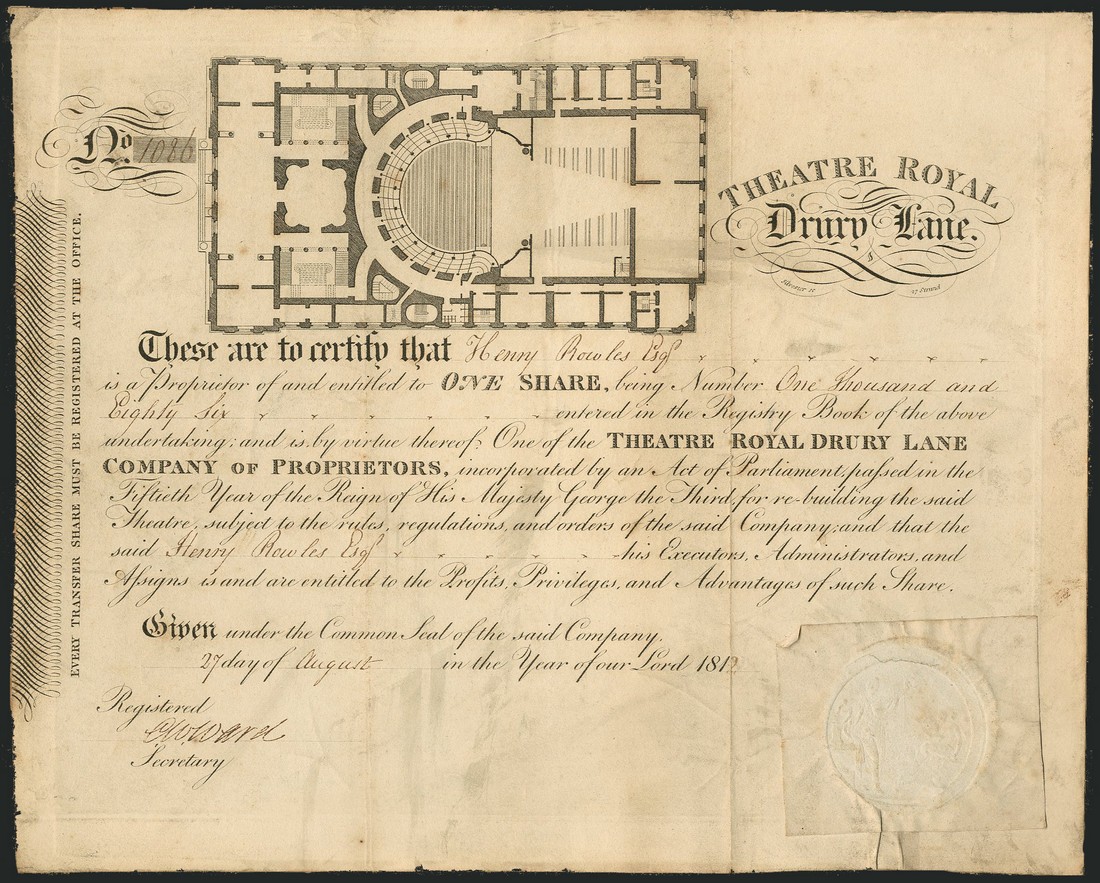 No. 1086
THEATRE ROYAL
Drury Lane.
27 Strand
EVERY TRANSFER SHARE MUST BE REGISTERED AT THE OFFICE.
These are to certify that Henry Rowles Esqr
is a Proprietor of and entitled to ONE SHARE, being Number One Thousand and
Eighty Six entered in the Registry Book of the above
undertaking; and is by virtue thereof; One of the THEATRE ROYAL DRURY LANE
COMPANY OF PROPRIETORS, incorporated by an Act of Parliament, passed in the
Fiftieth Year of the Reign of His Majesty George the Third, for re-building the said
Theatre, subject to the rules, regulations, and orders of the said Company; and that the
said Henry Rowles Esqr his Executors, Administrators, and
Assigns is and are entitled to the Profits, Privileges, and Advantages of such Share.
Given under the Common Seal of the said Company,
27 day of August in the Year of our Lord 1812
Registered
C W Ward
Secretary